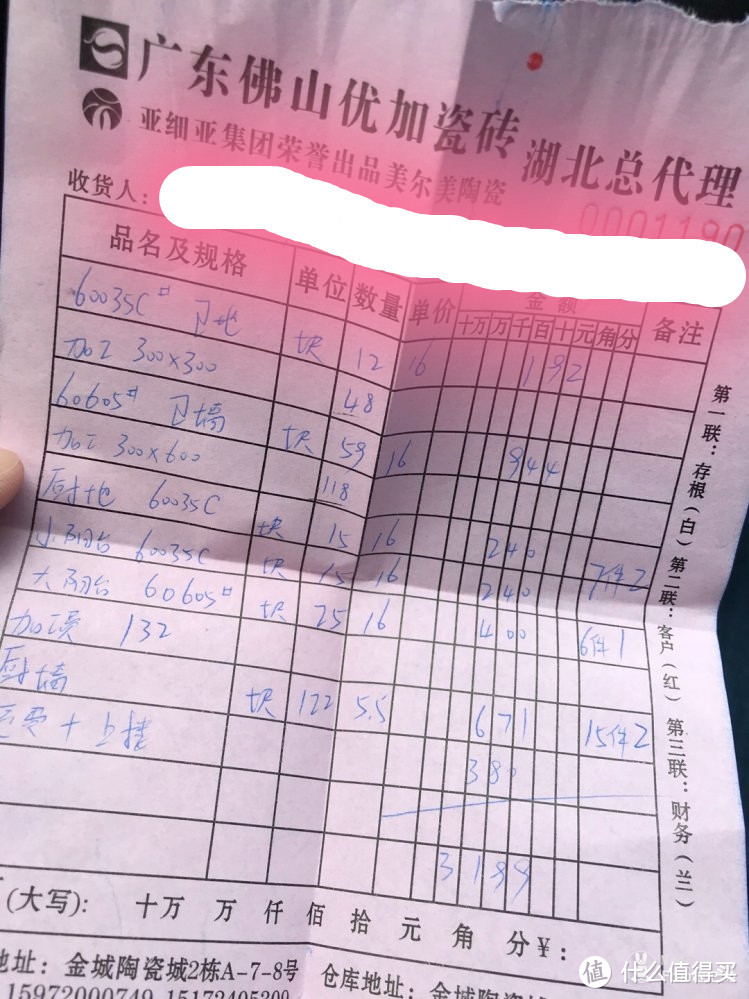 广东佛山优加瓷砖 湖北总代理
亚细亚集团荣誉出品美尔美陶瓷
0001190
收货人：
品名及规格 单位 数量 单价 金额 备注
十万 万 千 百 十 元 角 分
60035C# 卫地 块 12 16 192
加工 300×300 48
60605# 卫墙 块 59 16 944
加工 300×600 118
厨地 60035C 块 15 16 240
小阳台 60035C 块 15 16 240 7件2
大阳台 60605# 块 25 16 400 6件1
132
厨墙 块 122 5.5 671 15件2
费+上楼 380
3199
(大写)： 十万 万 仟 佰 拾 元 角 分￥：
地址：金城陶瓷城2栋A-7-8号 仓库地址：金城陶瓷
15972000749
第一联：存根(白) 第二联：客户(红) 第三联：财务(兰)
值 什么值得买